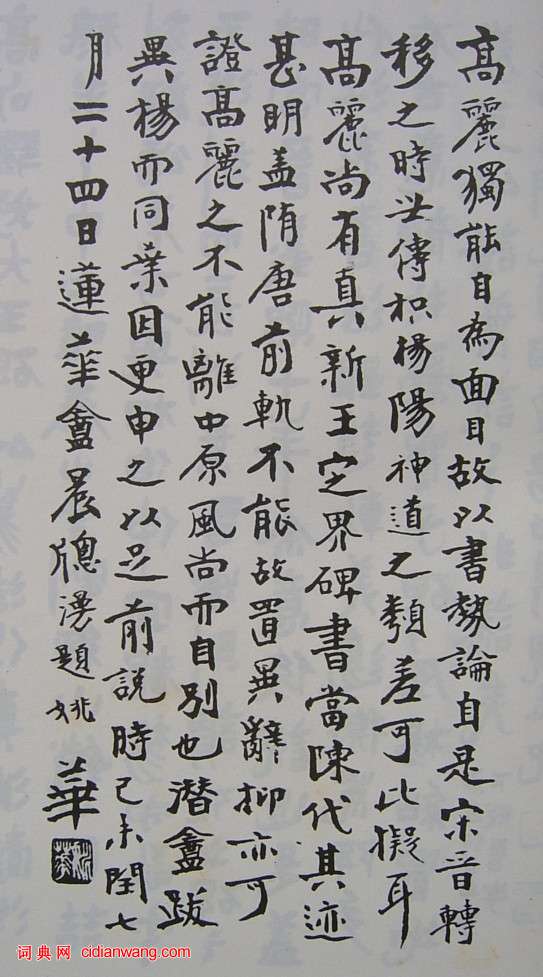 高麗獨能自為面目故以書勢論自是宋晉轉
移之時世傳枳楊陽神道之類差可比擬耳
高麗尚有真新王定界碑書當陳代其迹
甚明盖隋唐前軌不能故置異辭抑亦可
證高麗之不能離中原風尚而自別也潜盦跋
異楊而同葉因更申之以足前說時己未閏七
月二十四日蓮華盦晨牕漫題姚華
词典网 cidianwang.com